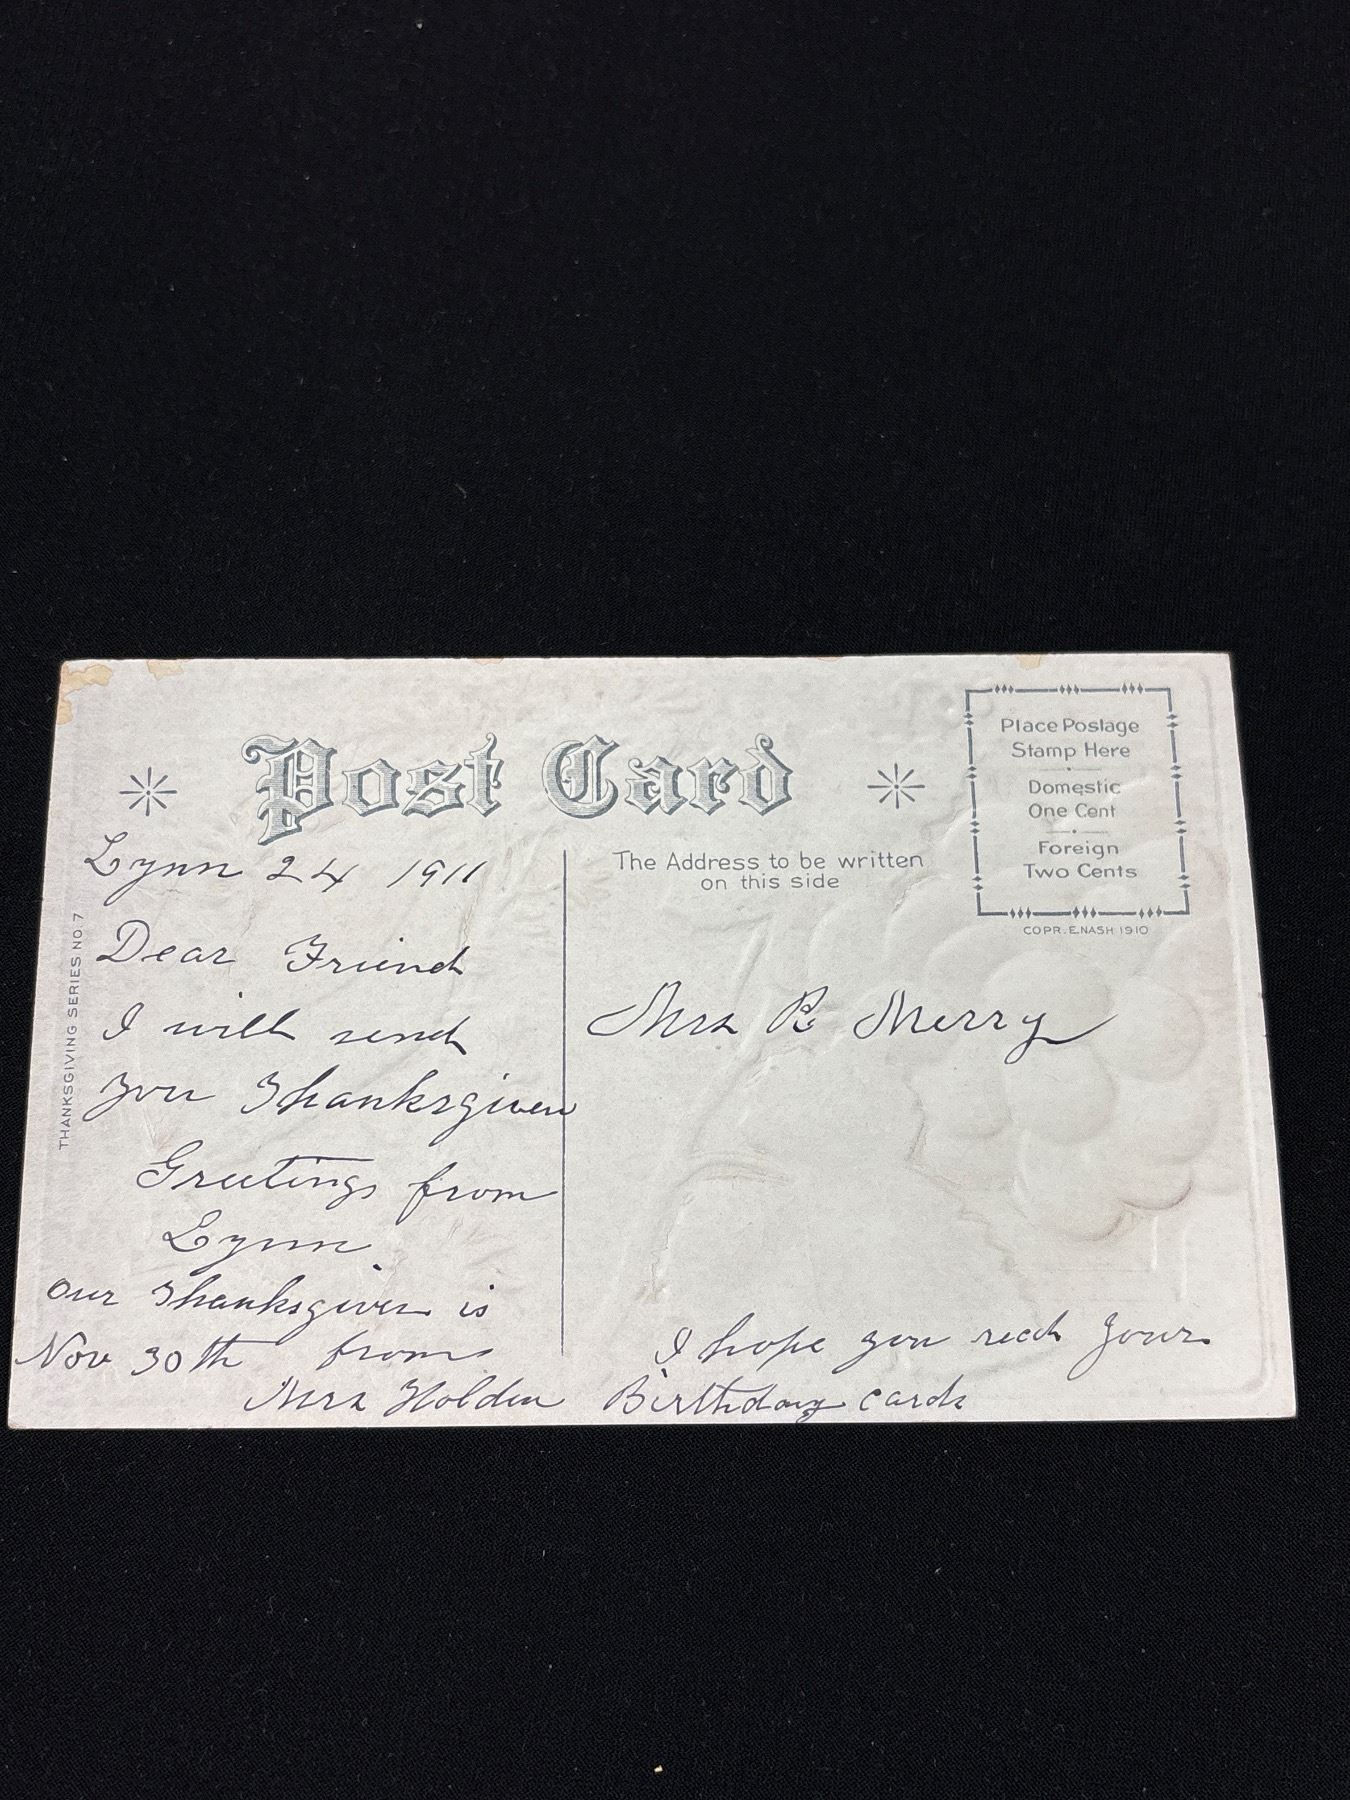 Post Card
Place Postage
Stamp Here
Domestic
One Cent
Foreign
Two Cents
COPR. E. NASH 1910
THANKSGIVING SERIES NO. 7
The Address to be written
on this side
Lynn 24 1911
Dear Friend
I will send
you Thanksgiven
Greetings from
Lynn
our Thanksgiven is
Nov 30th from
Mrs Holden
Mrs R Merry
I hope you recd your
Birthday cards